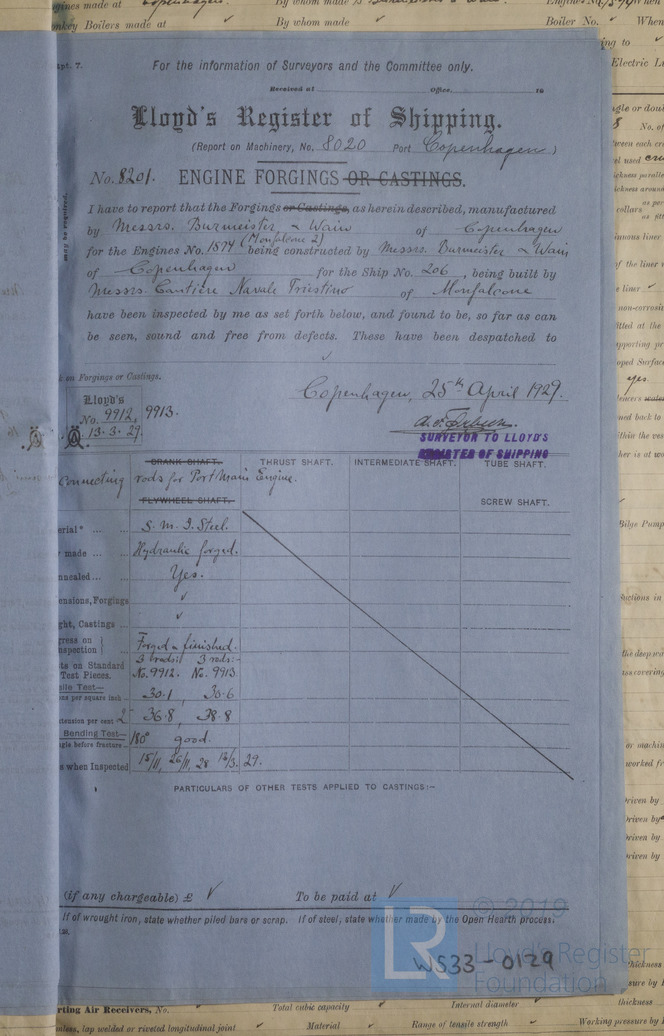 gines made at Copenhagen. By whom made
onkey Boilers made at ✓ By whom made ✓ Boiler No. ✓ When
pt. 7.
For the information of Surveyors and the Committee only.
Received at Office. 19
Lloyd's Register of Shipping.
(Report on Machinery, No. 8020 Port Copenhagen)
No. 8201. ENGINE FORGINGS OR CASTINGS.
I have to report that the Forgings or Castings, as herein described, manufactured
by Messrs. Burmeister & Wain of Copenhagen
for the Engines No. 1574 (Monfalcone 2) being constructed by Messrs. Burmeister & Wain
of Copenhagen for the Ship No. 206, being built by
Messrs Cantiere Navale Triestino of Monfalcone
have been inspected by me as set forth below, and found to be, so far as can
be seen, sound and free from defects. These have been despatched to
✓
k on Forgings or Castings.
Lloyd's
No. 9912, 9913.
13·3·29.
Copenhagen, 25th April 1929.
SURVEYOR TO LLOYD'S
REGISTER OF SHIPPING
CRANK SHAFT. THRUST SHAFT. INTERMEDIATE SHAFT. TUBE SHAFT.
Connecting rods for Port Main Engine.
FLYWHEEL SHAFT. SCREW SHAFT.
erial* ... ... S. M. I. Steel.
made ... ... Hydraulic forged.
nnealed... ... Yes.
ensions, Forgings ✓
ght, Castings ... ✓
gress on
nspection ... Forged & finished.
3 rods: 3 rods:-
ts on Standard
Test Pieces. No. 9912. No. 9913
sile Test—
ns per square inch 30·1, 30·6
tension per cent 2" 36·8, 38·8
Bending Test—
gle before fracture 180° good.
s when Inspected 15/11, 26/11, 28 13/3. 29.
PARTICULARS OF OTHER TESTS APPLIED TO CASTINGS:-
(if any chargeable) £ ✓ To be paid at ✓
If of wrought iron, state whether piled bars or scrap. If of steel, state whether made by the Open Hearth process.
© 2019
LR
Lloyd's Register
Foundation
WS33-0129
rting Air Receivers, No. Total cubic capacity ✓ Internal diameter ✓ thickness
mless, lap welded or riveted longitudinal joint ✓ Material ✓ Range of tensile strength ✓ Working pressure by